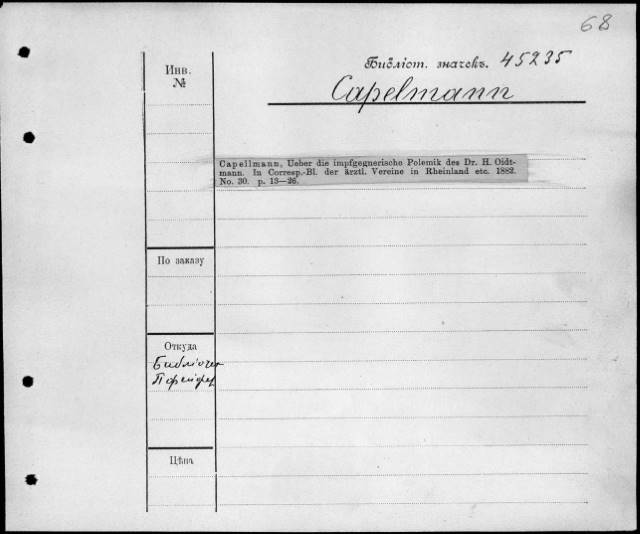 68
Библіот. значокъ. 45235
Инв.
№
Capelmann
Capellmann, Ueber die impfgegnerische Polemik des Dr. H. Oidt-
mann. In Corresp.-Bl. der ärztl. Vereine in Rheinland etc. 1882.
No. 30. p. 13—26.
По заказу
Откуда
Библіотек
Цѣнъ